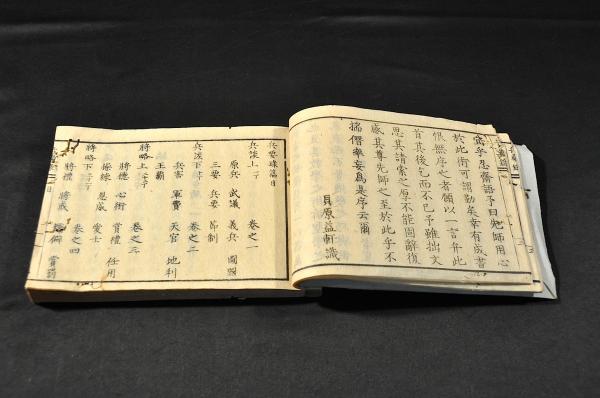 乎忍齋語予曰先師用心
於此術可謂勤矣幸有成書
恨無序之者願以一言弁此
首其後乞而不已予雖拙文
思其請索之厚不能固辭復
感其尊先師之至於此乎不
揣僭率妄爲是序云爾
貝原益軒識
兵要録篇目
兵談上 卷之一
原兵 武議 義兵
三要 兵要 節制
兵談下 卷之二
兵害 軍費 天官 地利
王覇
將略上 卷之三
將德 心術 賞禮 任用
操練 恩威 愛士
將略下 卷之四
將禮 將威 賞罰